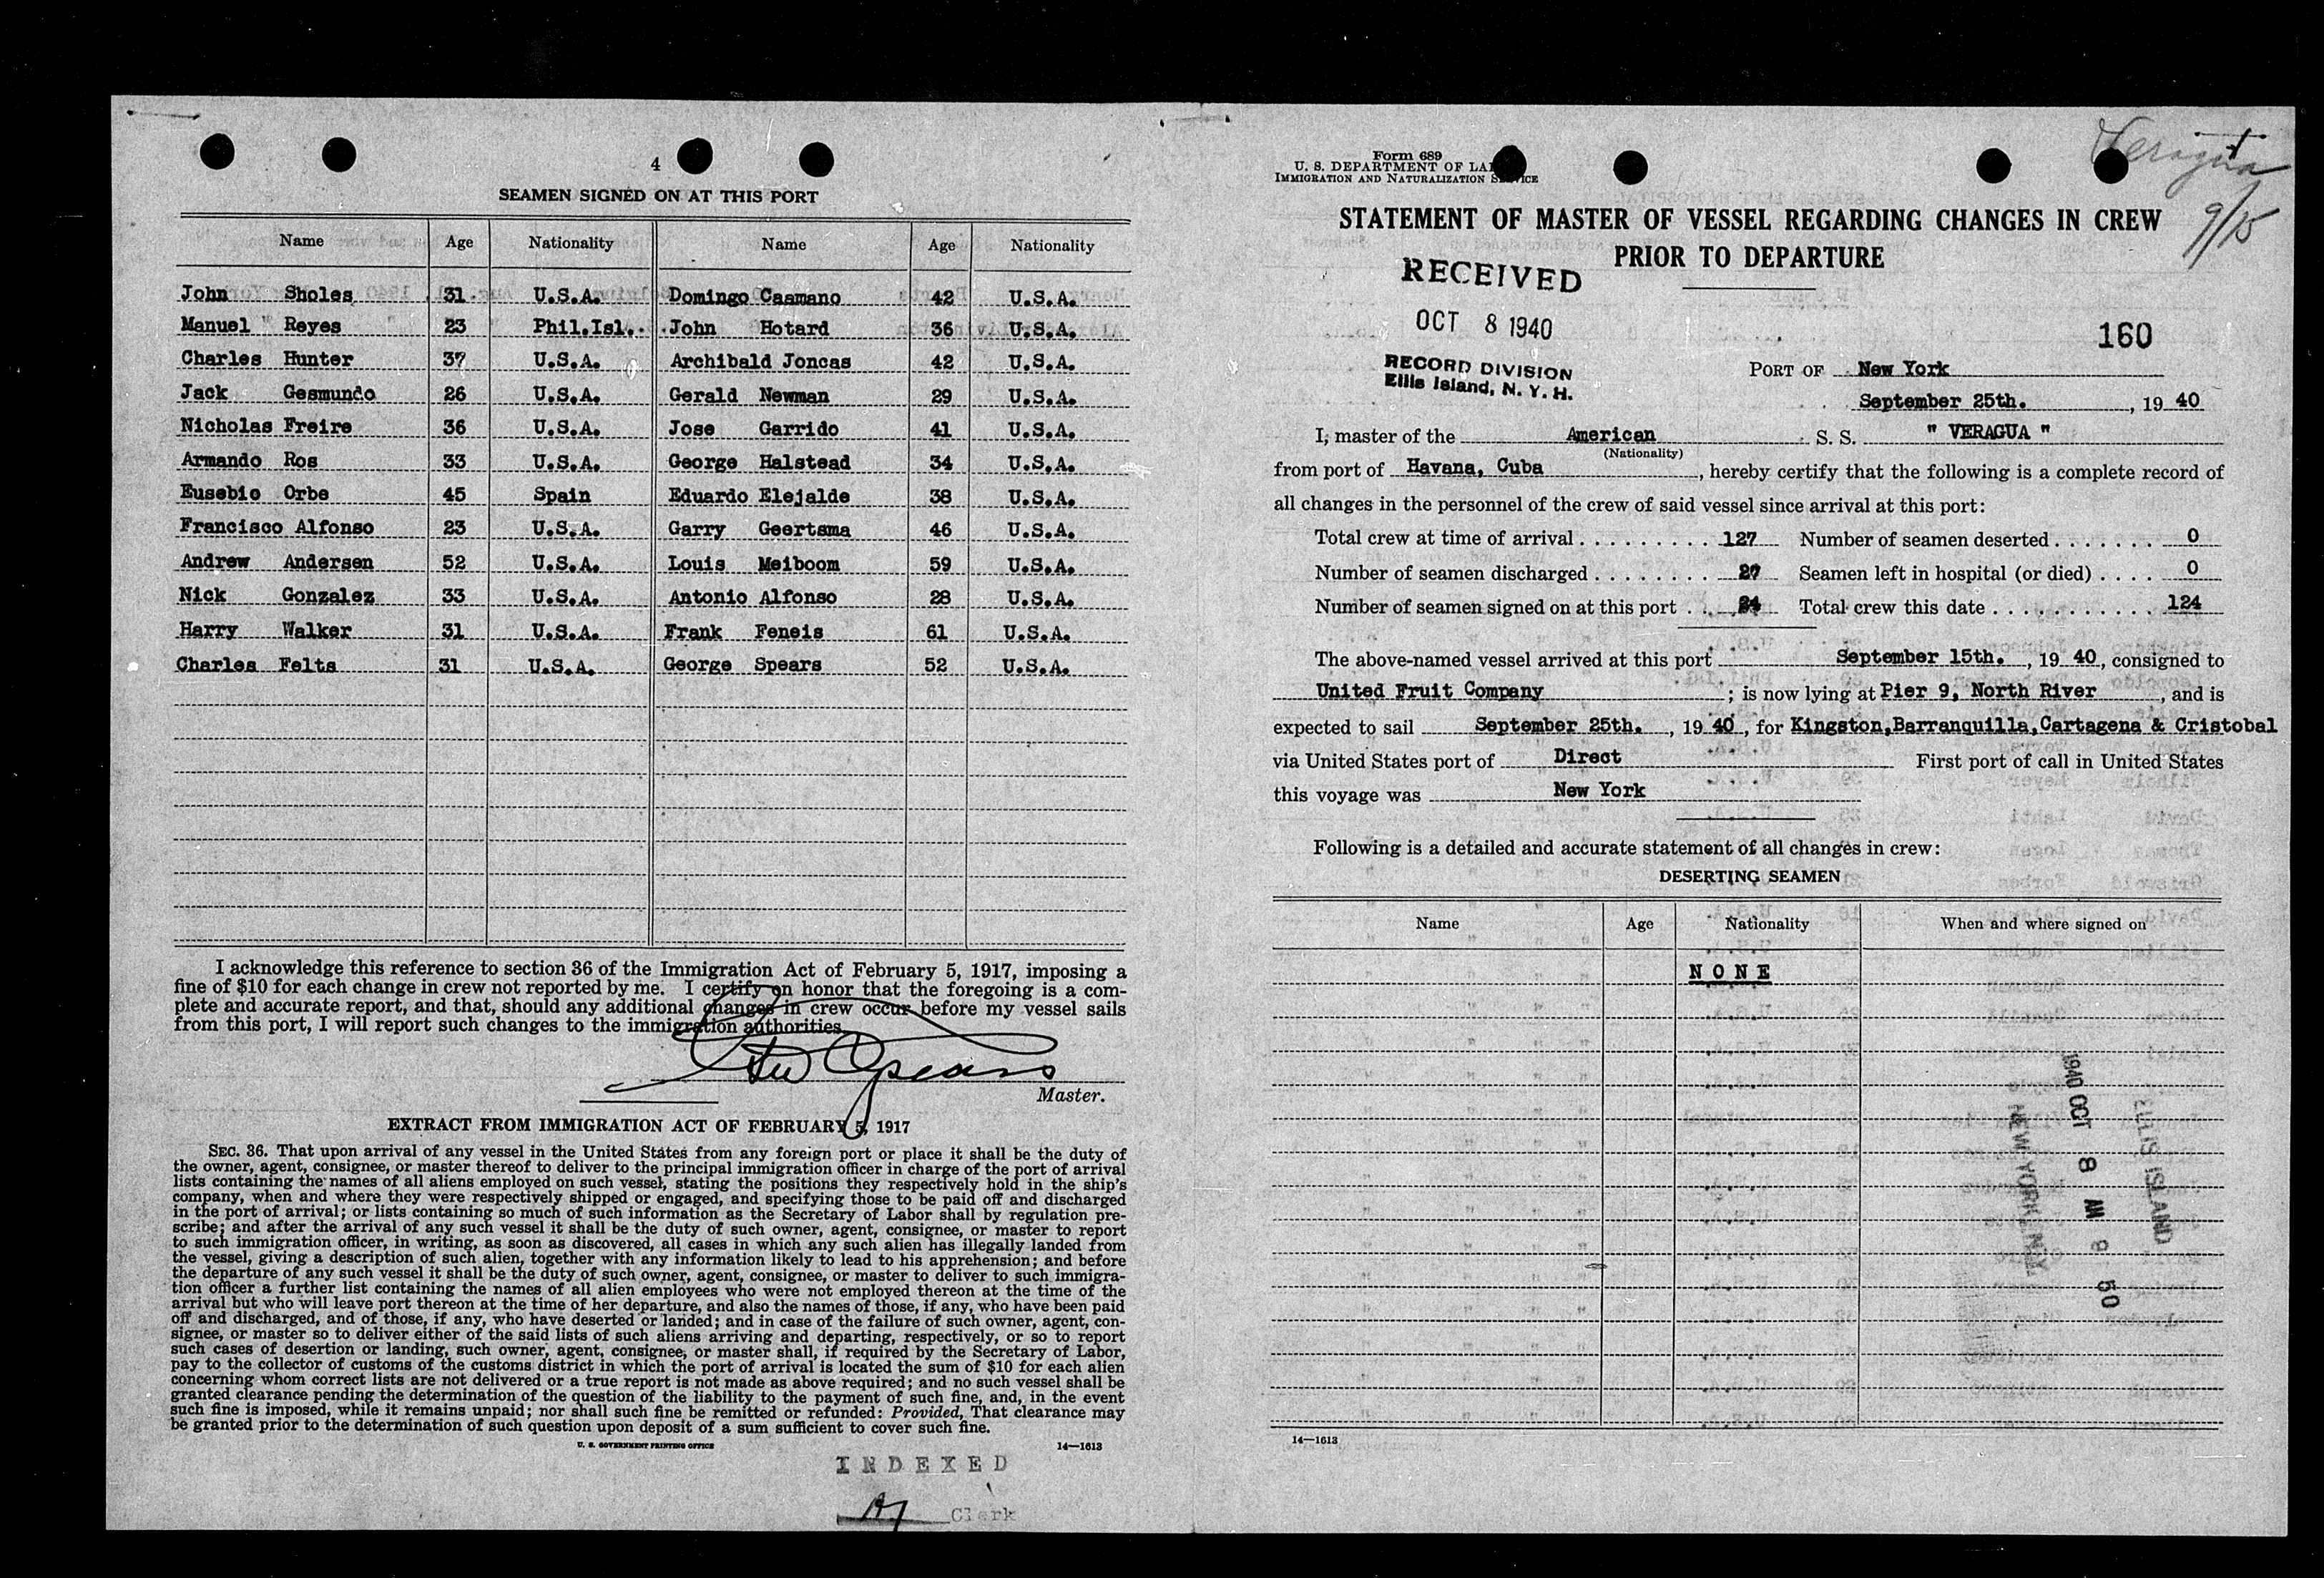 4
SEAMEN SIGNED ON AT THIS PORT
Name Age Nationality Name Age Nationality
John Sholes 31 U.S.A. Domingo Casmano 42 U.S.A.
Manuel Reyes 23 Phil.Isl. John Hotard 36 U.S.A.
Charles Hunter 37 U.S.A. Archibald Joncas 42 U.S.A.
Jack Gesmundo 26 U.S.A. Gerald Newman 29 U.S.A.
Nicholas Freire 36 U.S.A. Jose Garrido 41 U.S.A.
Armando Ros 33 U.S.A. George Halstead 34 U.S.A.
Eusebio Orbe 45 Spain Eduardo Elejalde 38 U.S.A.
Francisco Alfonso 23 U.S.A. Garry Geertsma 46 U.S.A.
Andrew Andersen 52 U.S.A. Louis Meiboom 59 U.S.A.
Nick Gonzalez 33 U.S.A. Antonio Alfonso 28 U.S.A.
Harry Walker 31 U.S.A. Frank Feneis 61 U.S.A.
Charles Felts 31 U.S.A. George Spears 52 U.S.A.
I acknowledge this reference to section 36 of the Immigration Act of February 5, 1917, imposing a
fine of $10 for each change in crew not reported by me. I certify on honor that the foregoing is a com-
plete and accurate report, and that, should any additional changes in crew occur before my vessel sails
from this port, I will report such changes to the immigration authorities
Spears
Master.
EXTRACT FROM IMMIGRATION ACT OF FEBRUARY 5, 1917
SEC. 36. That upon arrival of any vessel in the United States from any foreign port or place it shall be the duty of
the owner, agent, consignee, or master thereof to deliver to the principal immigration officer in charge of the port of arrival
lists containing the names of all aliens employed on such vessel, stating the positions they respectively hold in the ship's
company, when and where they were respectively shipped or engaged, and specifying those to be paid off and discharged
in the port of arrival; or lists containing so much of such information as the Secretary of Labor shall by regulation pre-
scribe; and after the arrival of any such vessel it shall be the duty of such owner, agent, consignee, or master to report
to such immigration officer, in writing, as soon as discovered, all cases in which any such alien has illegally landed from
the vessel, giving a description of such alien, together with any information likely to lead to his apprehension; and before
the departure of any such vessel it shall be the duty of such owner, agent, consignee, or master to deliver to such immigra-
tion officer a further list containing the names of all alien employees who were not employed thereon at the time of the
arrival but who will leave port thereon at the time of her departure, and also the names of those, if any, who have been paid
off and discharged, and of those, if any, who have deserted or landed; and in case of the failure of such owner, agent, con-
signee, or master so to deliver either of the said lists of such aliens arriving and departing, respectively, or so to report
such cases of desertion or landing, such owner, agent, consignee, or master shall, if required by the Secretary of Labor,
pay to the collector of customs of the customs district in which the port of arrival is located the sum of $10 for each alien
concerning whom correct lists are not delivered or a true report is not made as above required; and no such vessel shall be
granted clearance pending the determination of the question of the liability to the payment of such fine, and, in the event
such fine is imposed, while it remains unpaid; nor shall such fine be remitted or refunded: Provided, That clearance may
be granted prior to the determination of such question upon deposit of a sum sufficient to cover such fine.
U. S. GOVERNMENT PRINTING OFFICE 14—1613
INDEXED
Clerk
Form 689
U. S. DEPARTMENT OF LA
IMMIGRATION AND NATURALIZATION S ICE
Veragua
9/15
STATEMENT OF MASTER OF VESSEL REGARDING CHANGES IN CREW
PRIOR TO DEPARTURE
RECEIVED
OCT 8 1940
RECORD DIVISION
Ellis Island, N. Y. H.
160
PORT OF New York
September 25th. , 19 40
I, master of the American S. S. " VERAGUA "
(Nationality)
from port of Havana, Cuba , hereby certify that the following is a complete record of
all changes in the personnel of the crew of said vessel since arrival at this port:
Total crew at time of arrival . . . . . . . . . 127 Number of seamen deserted . . . . . . . 0
Number of seamen discharged . . . . . . . . Seamen left in hospital (or died) . . . . 0
Number of seamen signed on at this port . . 24 Total crew this date . . . . . . . . . . . 124
The above-named vessel arrived at this port September 15th. , 19 40, consigned to
United Fruit Company ; is now lying at Pier 9, North River , and is
expected to sail September 25th. , 19 40 , for Kingston,Barranquilla,Cartagena & Cristobal
via United States port of Direct First port of call in United States
this voyage was New York
Following is a detailed and accurate statement of all changes in crew:
DESERTING SEAMEN
Name Age Nationality When and where signed on
NONE
1940 OCT 8 AM 9 50
ELLIS ISLAND
14—1613